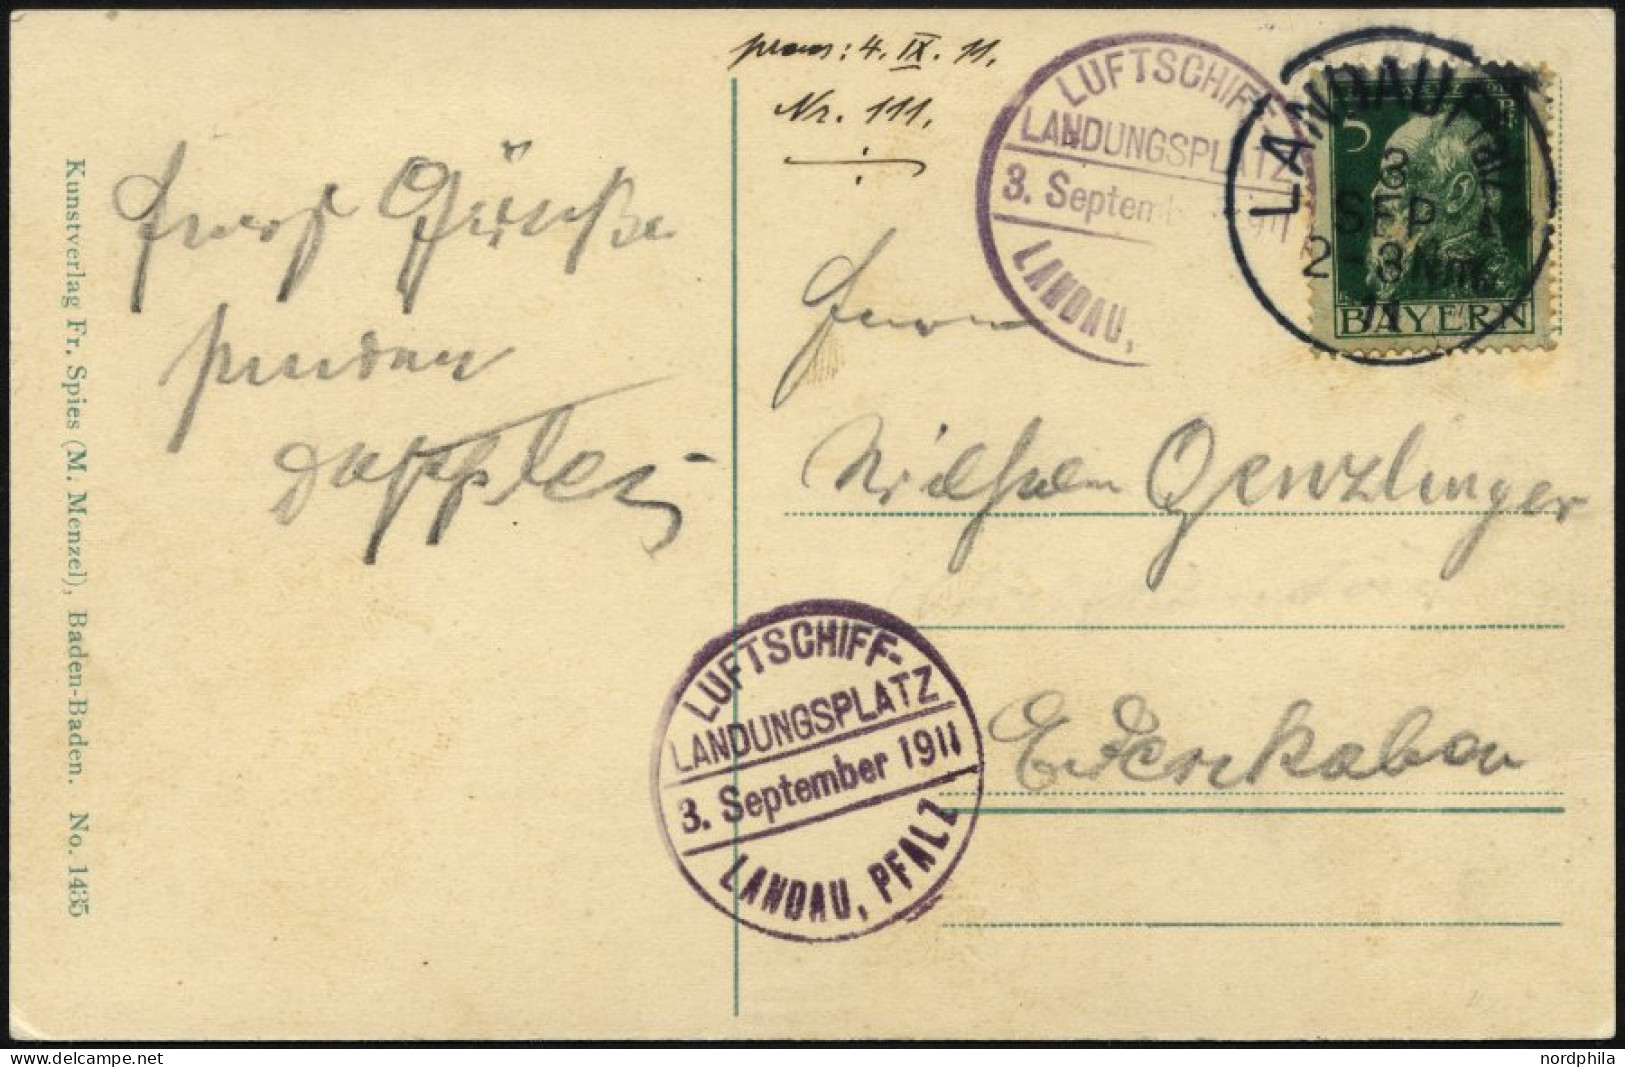 praes: 4. IX. 11.
Nr. 111.
LUFTSCHIFF-
LANDUNGSPLATZ
3. Septemb 911
LANDAU,
LANDAU Pfalz
3
SEP
2-3 Nm.
11
5
BAYERN
Grüße
senden
Herrn
Wilhelm Genzlinger
Edenkoben
LUFTSCHIFF-
LANDUNGSPLATZ
3. September 1911
LANDAU, PFALZ
Kunstverlag Fr. Spies (M. Menzel), Baden-Baden. No. 1435
nordphila